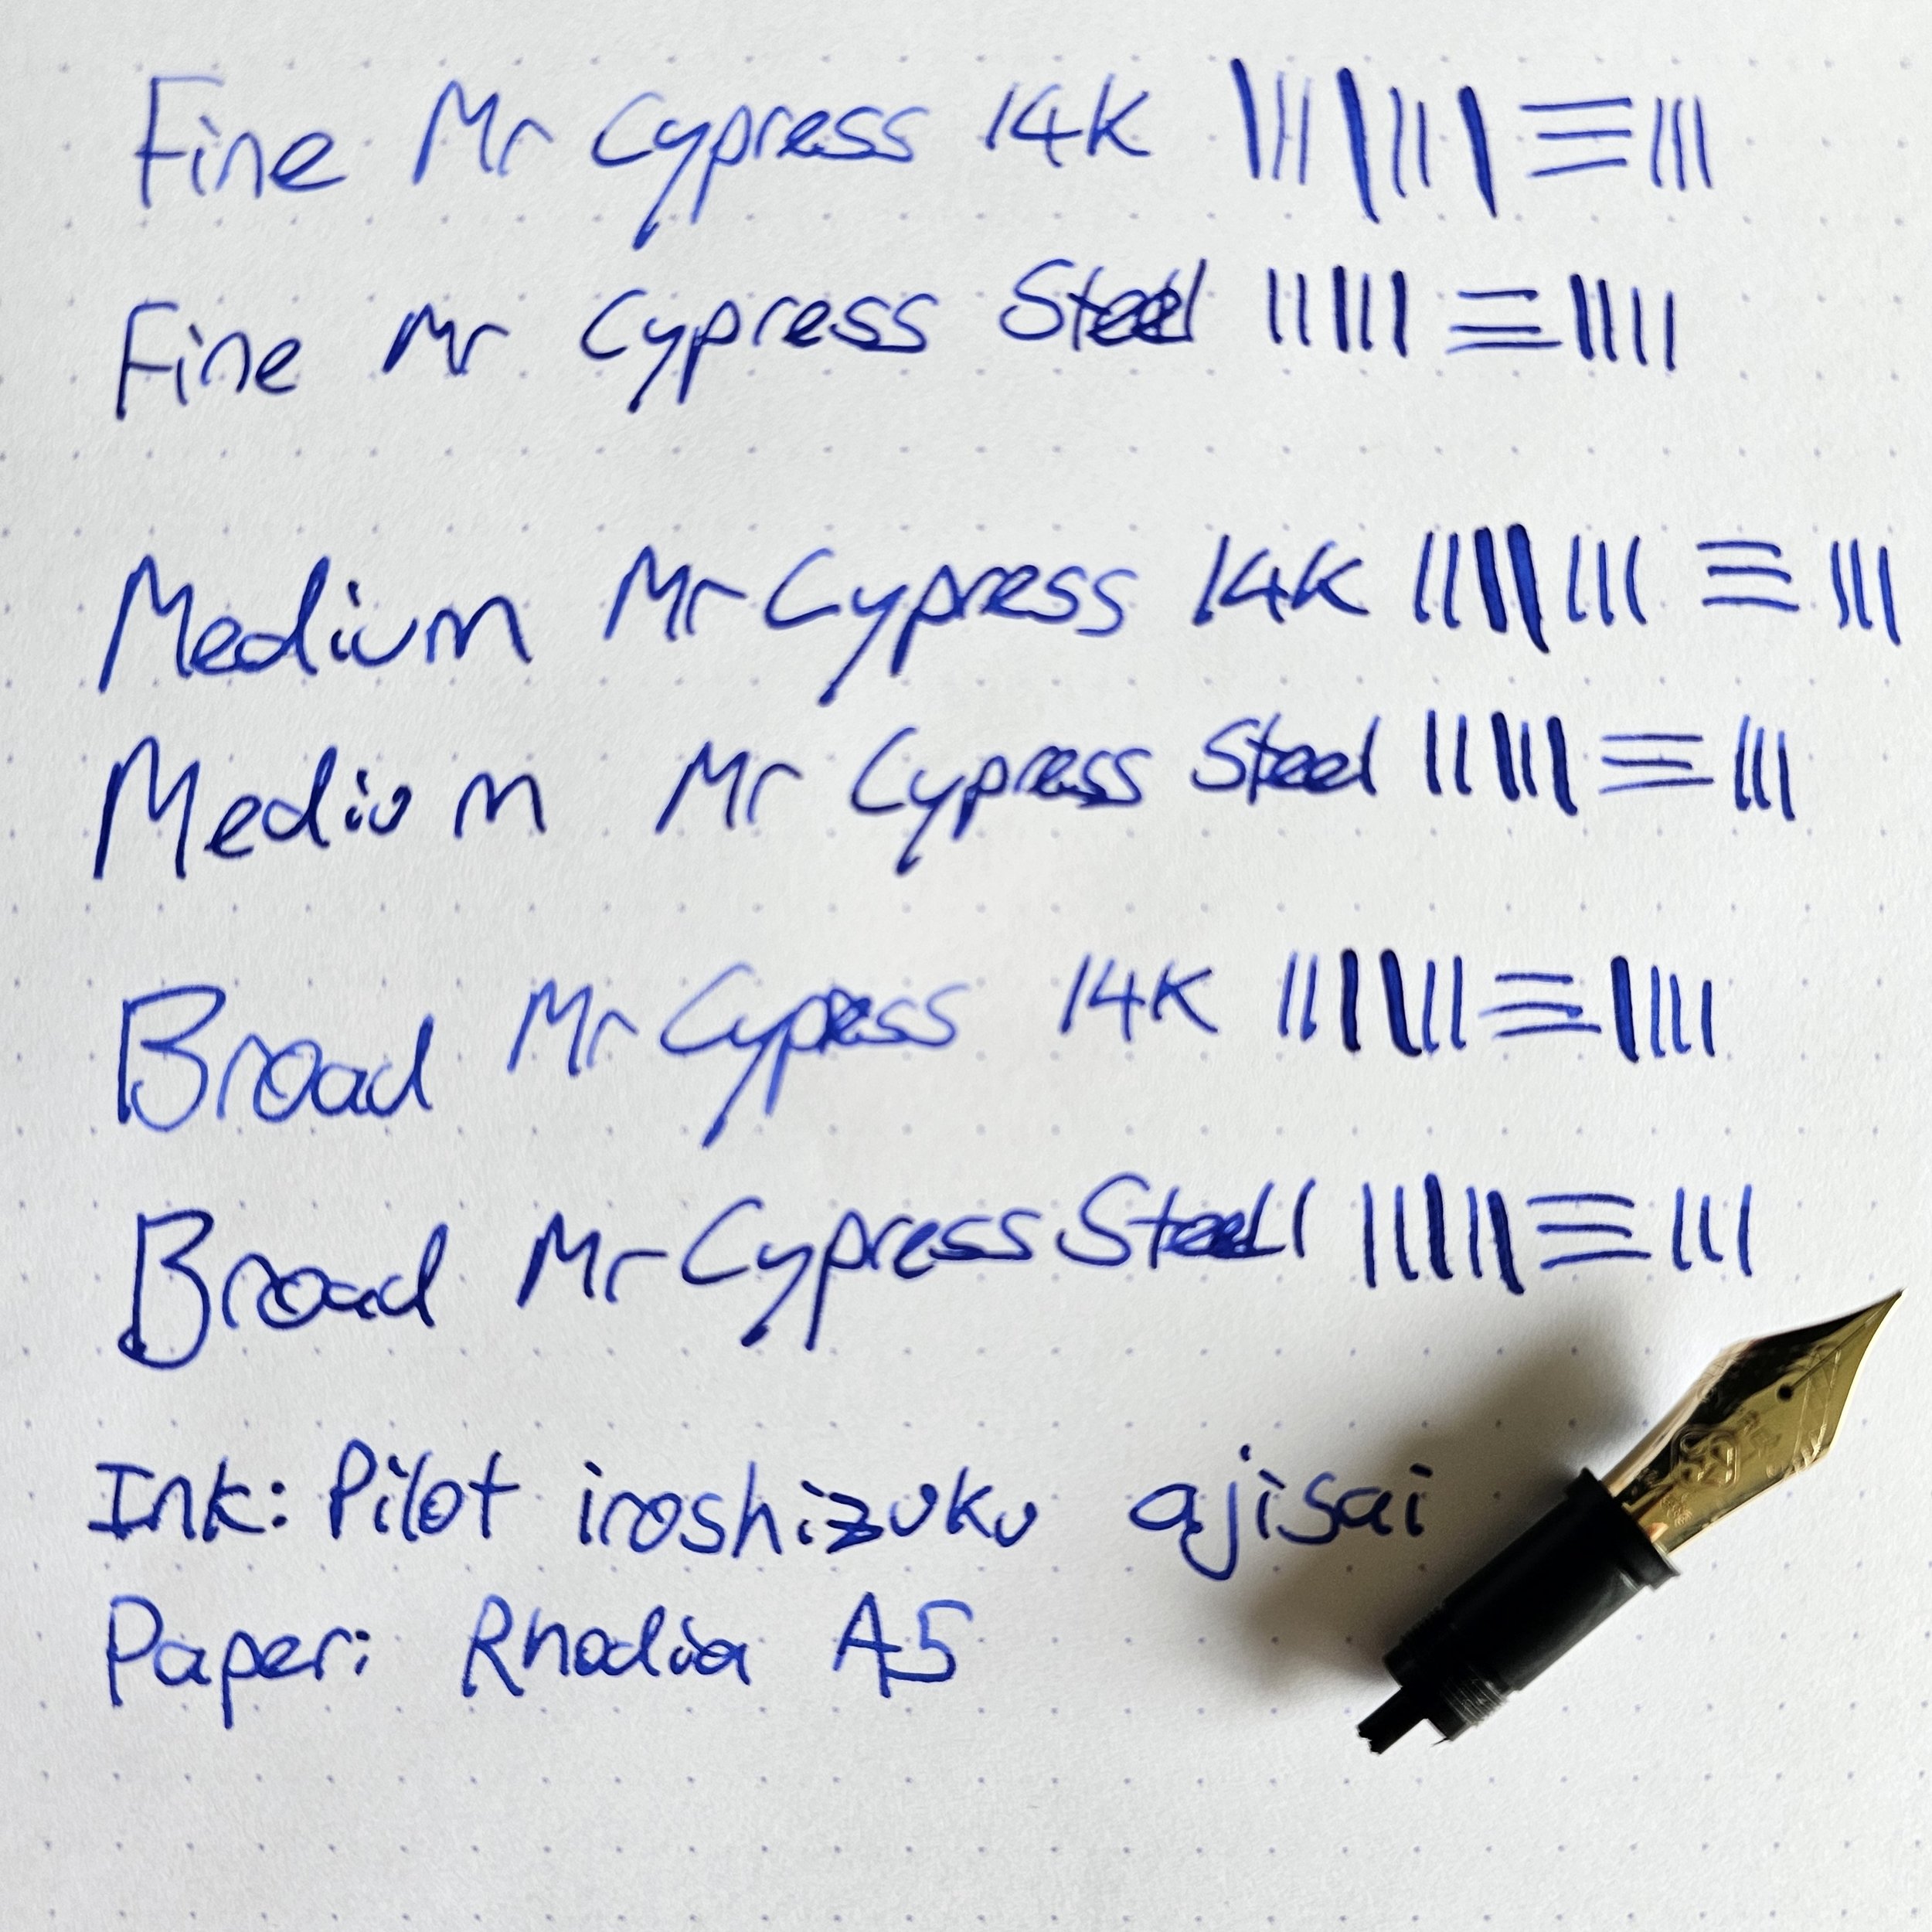 Fine Mr Cypress 14K
Fine Mr Cypress Steel
Medium Mr Cypress 14K
Medium Mr Cypress Steel
Broad Mr Cypress 14K
Broad Mr Cypress Steel
Ink: Pilot iroshizuku ajisai
Paper: Rhodia A5